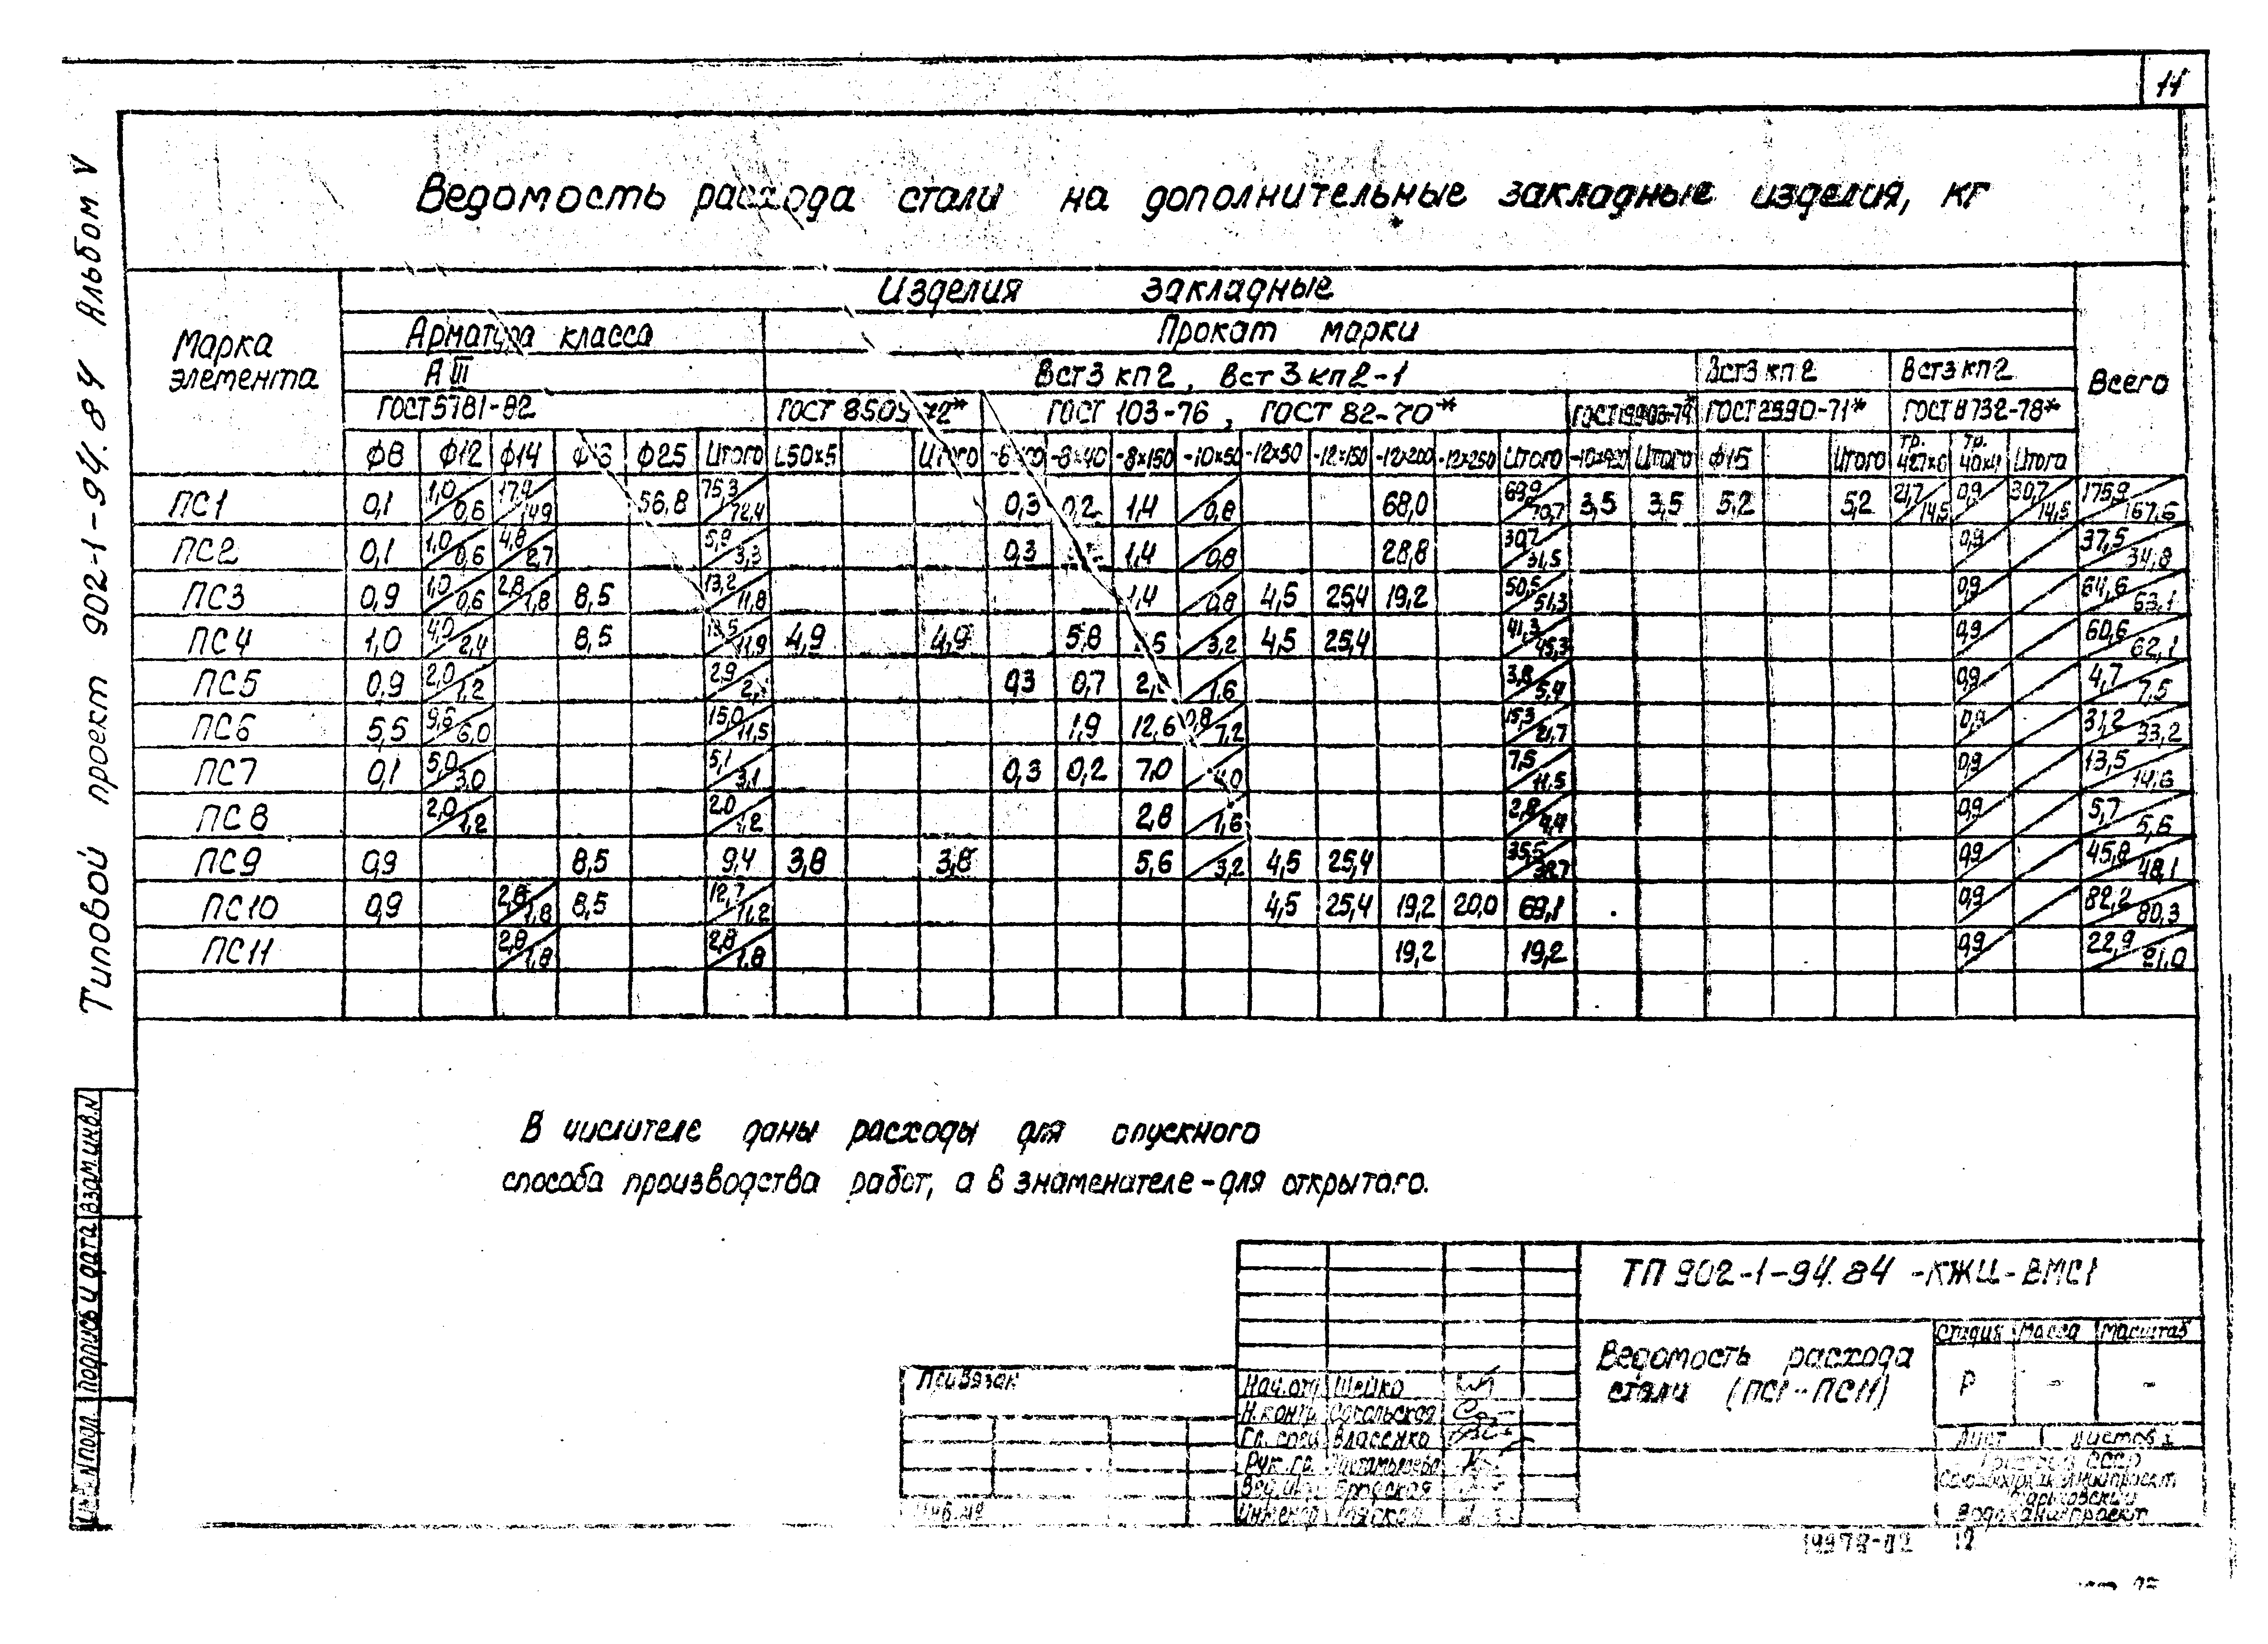 11
Типовой проект 902-1-94.84 Альбом V
Ведомость расхода стали на дополнительные закладные изделия, кг
Марка элемента
Изделия закладные
Всего
Арматура класса
Прокат марки
А III
Вст3 кп2, Вст3кп2-1
Вст3 кп2
Вст3 кп2
ГОСТ 5781-82
ГОСТ 8509-72*
ГОСТ 103-76, ГОСТ 82-70*
ГОСТ 19903-74*
ГОСТ 2590-71*
ГОСТ 8732-78*
Ф8 Ф12 Ф14 Ф25 Итого L50×5 Итого -8×40 -8×150 -10×50 -12×50 -12×150 -12×200 -12×250 Итого Итого Ф16 Итого тр. тр. Итого
ПС1 0,1 1,0/0,6 17,4/14,9 56,8 75,3/72,4 0,3 0,2 1,4 /0,8 68,0 69,9/70,7 3,5 3,5 5,2 5,2 21,7/14,5 0,9/ 30,7/14,5 175,9/167,6
ПС2 0,1 1,0/0,6 4,8/2,7 5,9/3,3 0,3 1,4 /0,8 28,8 30,7/31,5 0,9/ 37,5/34,8
ПС3 0,9 1,0/0,6 2,8/1,8 8,5 13,2/11,8 1,4 /0,8 4,5 25,4 19,2 50,5/51,3 0,9/ 64,6/63,1
ПС4 1,0 4,0/2,4 8,5 13,5/11,9 4,9 4,9 5,8 /3,2 4,5 25,4 41,3/45,3 0,9/ 60,6/62,1
ПС5 0,9 2,0/1,2 2,9/ 0,3 0,7 /1,6 3,8/5,4 0,9/ 4,7/7,5
ПС6 5,5 /6,0 15,0/11,5 1,9 12,6 0,8/7,2 15,3/21,7 0,9/ 31,2/33,2
ПС7 0,1 5,0/3,0 5,1/3,1 0,3 0,2 7,0 /4,0 7,5/11,5 0,9/ 13,5/14,6
ПС8 2,0/1,2 2,0/1,2 2,8 /1,6 2,8/4,4 0,9/ 5,7/5,6
ПС9 0,9 8,5 9,4 3,8 3,8 5,6 /3,2 4,5 25,4 35,5/38,7 0,9/ 45,8/48,1
ПС10 0,9 2,8/1,8 8,5 12,7/11,2 4,5 25,4 19,2 20,0 69,1 0,9/ 82,2/80,3
ПС11 2,8/1,8 2,8/1,8 19,2 19,2 0,9/ 22,9/21,0
В числителе даны расходы для опускного
способа производства работ, а в знаменателе - для открытого.
ТП 902-1-94.84 -КЖИ-ВМС1
Ведомость расхода
стали (ПС1..ПС11)
Стадия Масса Масштаб
Р - -
Лист Листов 1
Госстрой СССР
Харьковский
Водоканалпроект
Привязан
Инв. №
Нач. отд. Шейко
Н. контр. Сокольская
Гл. спец. Власенко
Рук. гр.
Вед. инж.
Инженер
Инв. № подл. Подпись и дата Взам. инв. №
19978-02 12